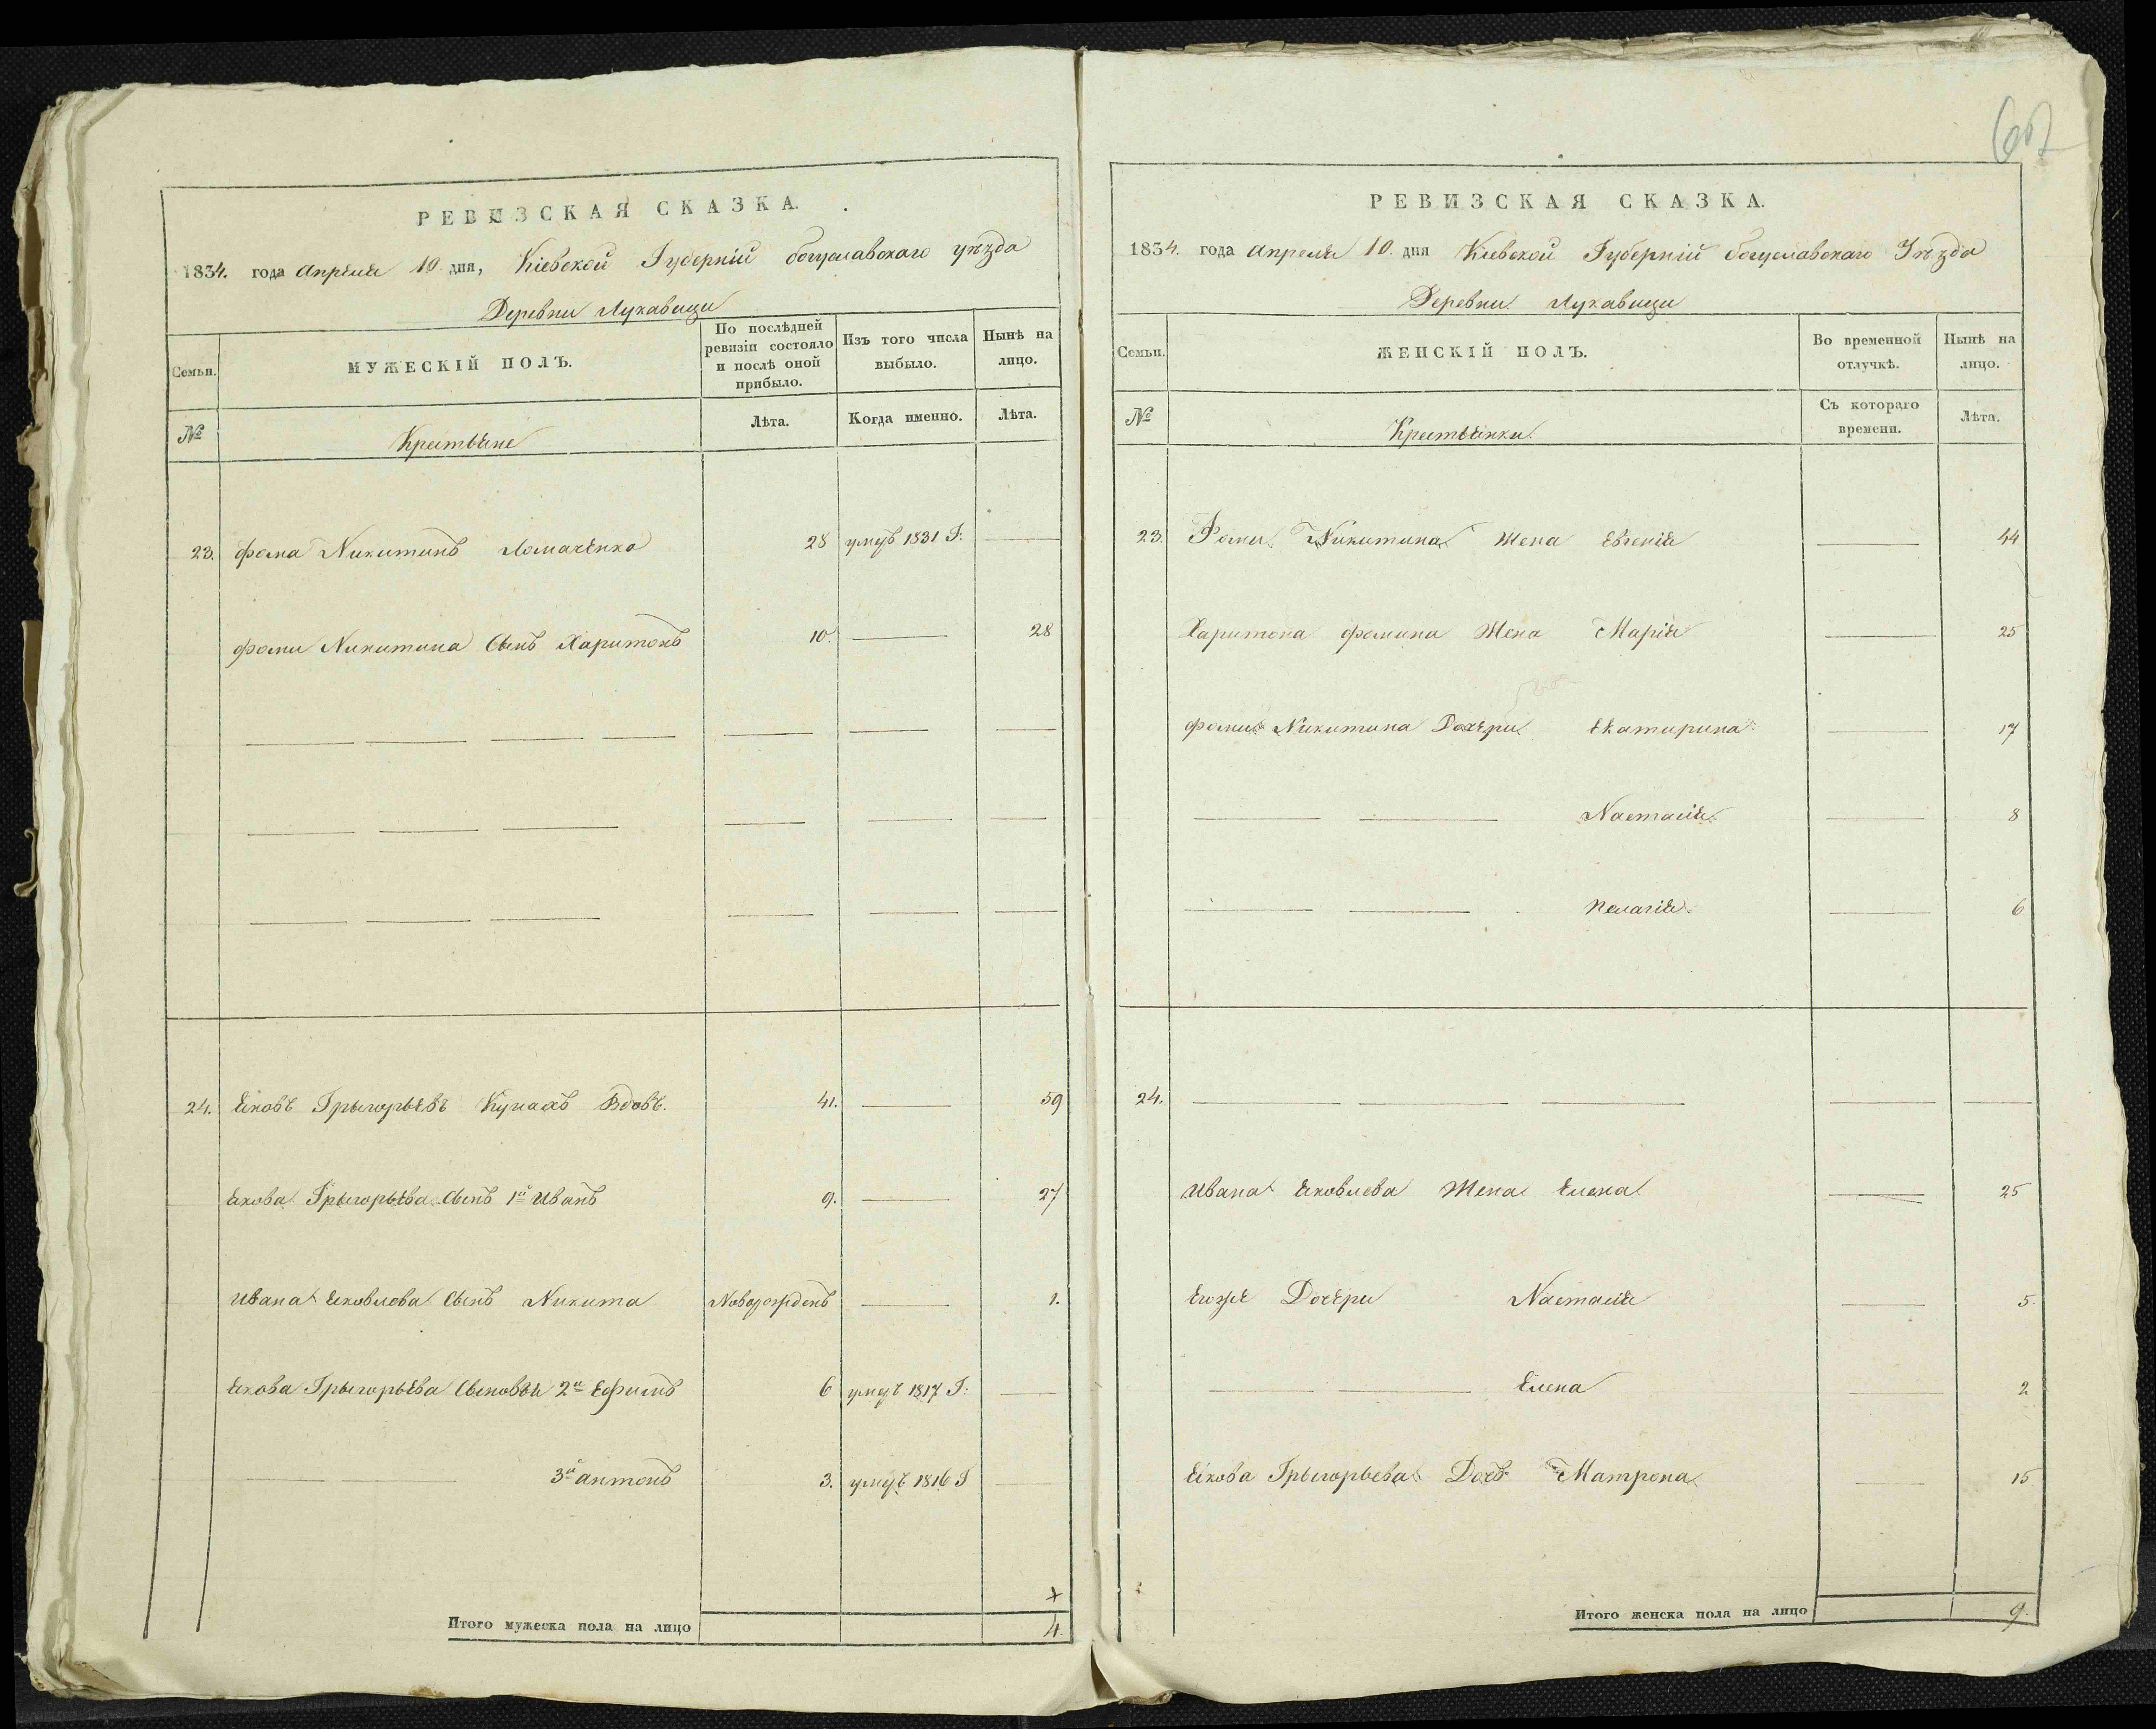 РЕВИЗСКАЯ СКАЗКА.
1834. года Апреля 10 дня, Кіевской Губерніи богуславскаго уѣзда
Деревни Лукавици
Семьи.
МУЖЕСКІЙ ПОЛЪ.
По послѣдней ревизіи состояло и послѣ оной прибыло.
Изъ того числа выбыло.
Нынѣ на лицо.
№
Крестьяне
Лѣта.
Когда именно.
Лѣта.
23. Фома Никитинъ Ломаченко 28 умеръ 1831 Г:
Фоми Никитина Сынъ Харитонъ 10. 28
24. Яковъ Грыгорьевъ Вдовъ. 41. 59
Якова Грыгорьева Сынъ 1й Иванъ 9. 27
Ивана Яковлева Сынъ Никита Новорожденъ 1.
Якова Грыгорьева Сыновья 2й Ефимъ 6 умеръ 1817 Г:
3й Антонъ 3. умеръ 1816 Г
Итого мужеска пола на лицо 4.
РЕВИЗСКАЯ СКАЗКА.
1834. года Апреля 10. дня Кіевской Губерніи богуславскаго Уѣзда
Деревни Лукавици
Семьи.
ЖЕНСКІЙ ПОЛЪ.
Во временной отлучкѣ.
Нынѣ на лицо.
№
Крестьянки.
Съ котораго времени.
Лѣта.
23. Фоми Никитина Жена Евгенія 44
Харитона Фомина Жена Марія 25
Фоми Никитина Дочери Екатирина 17
Настасія 8
Пелагія 6
24.
Ивана Яковлева Жена Елена 25
Егожъ Дочери Настасія 5.
Елена 2
Якова Грыгорьева Дочь Матрона 15
Итого женска пола на лицо 9.